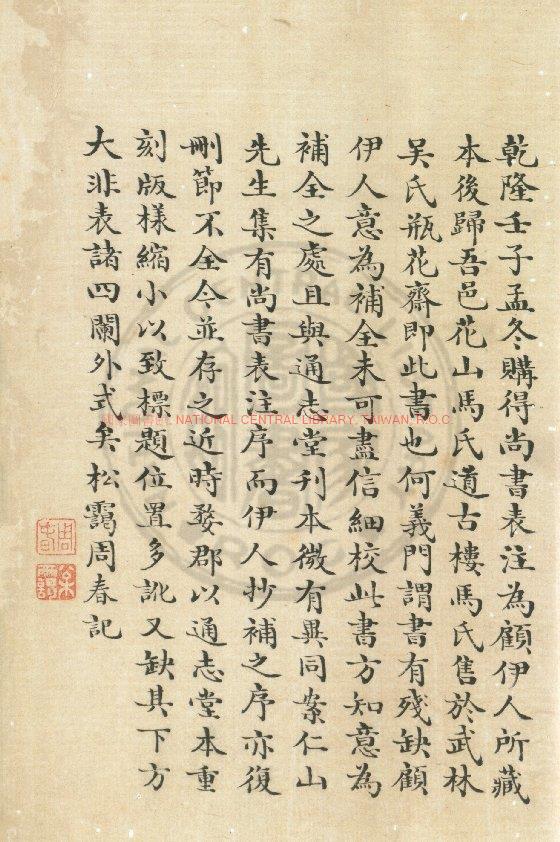 乾隆壬子孟冬購得尚書表注為顧伊人所藏
本後歸吾邑花山馬氏道古樓馬氏售於武林
吳氏瓶花齋即此書也何義門謂書有殘缺顧
伊人意為補全未可盡信細校此書方知意為
補全之處且與通志堂刊本微有異同案仁山
先生集有尚書表注序而伊人抄補之序亦復
刪節不全今並存之近時婺郡以通志堂本重
刻版樣縮小以致標題位置多訛又缺其下方
大非表諸四闌外式矣松靄周春記
周春
松靄
NATIONAL CENTRAL LIBRARY, TAIWAN, R.O.C